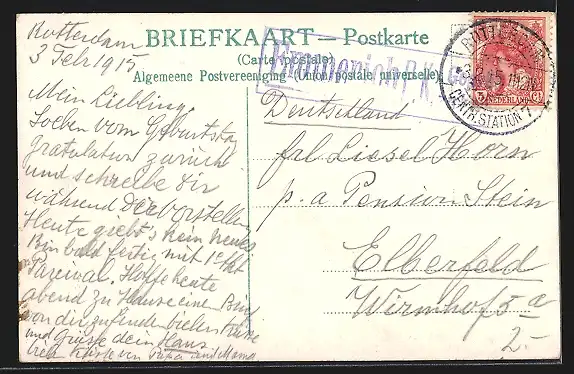 Rotterdam
3 Febr 1915
BRIEFKAART — Postkarte
(Carte postale)
Algemeene Postvereeniging (Union postale universelle)
Emmerich P.K.
ROTTERDAM
CENTR. STATION 7
NEDERLAND
Mein Liebling.
Soeben vom Geburtstag
gratulation zurück
und schreibe dir
während der Vorstellung
Heute giebt's kein neues
Bin bald fertig mit 1 Akt
Parcival. Hoffe heute
abend zu Hause eine
von dir zu finden. vielen
und Grüsse dein Hans
Küsse von Papa und Mama
Deutschland
frl Liesel Horn
p. a Pension Stein
Elberfeld
2-